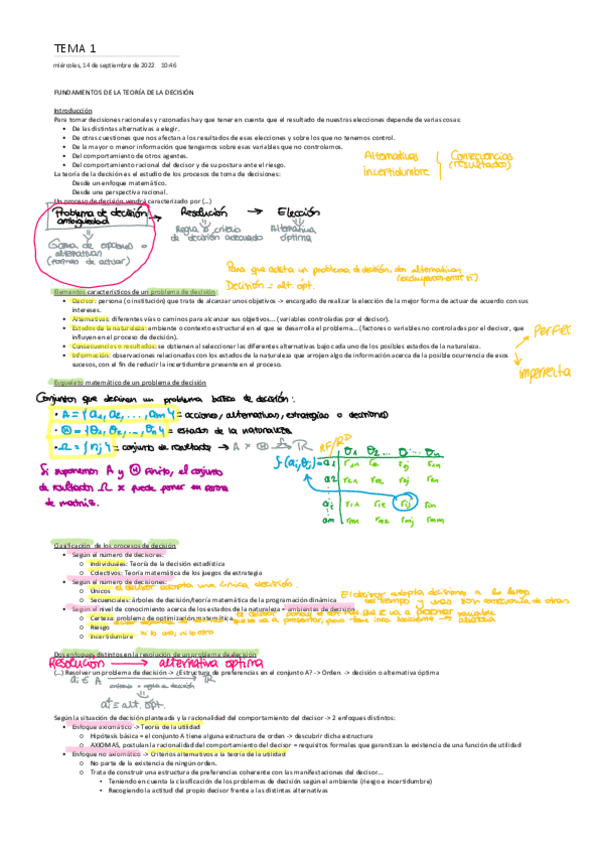 TEMA 1
miércoles, 14 de septiembre de 2022 10:46
FUNDAMENTOS DE LA TEORÍA DE LA DECISIÓN
Introducción
Para tomar decisiones racionales y razonadas hay que tener en cuenta que el resultado de nuestras elecciones depende de varias cosas:
• De las distintas alternativas a elegir.
• De otras cuestiones que nos afectan a los resultados de esas elecciones y sobre los que no tenemos control.
• De la mayor o menor información que tengamos sobre esas variables que no controlamos.
• Del comportamiento de otros agentes.
• Del comportamiento racional del decisor y de su postura ante el riesgo.
Alternativas
incertidumbre
Consecuencias
(resultados)
La teoría de la decisión es el estudio de los procesos de toma de decisiones:
Desde un enfoque matemático.
Desde una perspectiva racional.
Un proceso de decisión vendrá caracterizado por (...)
Problema de decisión → Resolución → Elección
ambigüedad
Regla o criterio
de decisión adecuado
Alternativa
óptima
Gama de opciones o
alternativas
(formas de actuar)
Para que exista un problema de decisión, dos alternativas
Decisión = alt. opt.
Elementos característicos de un problema de decisión
• Decisor: persona (o institución) que trata de alcanzar unos objetivos -> encargado de realizar la elección de la mejor forma de actuar de acuerdo con sus
intereses.
• Alternativas: diferentes vías o caminos para alcanzar sus objetivos... (variables controladas por el decisor).
• Estados de la naturaleza: ambiente o contexto estructural en el que se desarrolla el problema... (factores o variables no controladas por el decisor, que
influyen en el proceso de decisión).
• Consecuencias o resultados: se obtienen al seleccionar las diferentes alternativas bajo cada uno de los posibles estados de la naturaleza.
• Información: observaciones relacionadas con los estados de la naturaleza que arrojen algo de información acerca de la posible ocurrencia de esos
sucesos, con el fin de reducir la incertidumbre presente en el proceso.
Perfec
Imperfecta
Esqueleto matemático de un problema de decisión
Conjuntos que definen un problema básico de decisión:
• A = {a1, a2, ..., am} = acciones, alternativas, estrategias o decisiones
• Θ = {θ1, θ2, ..., θn} = estados de la naturaleza
• Ω = {rij} = conjunto de resultados → A × Θ → R
Si suponemos A y Θ finito, el conjunto
de resultados Ω se puede poner en forma
de matriz.
f(ai, θj) = a1
Clasificación de los procesos de decisión
• Según el número de decisores:
○ Individuales: Teoría de la decisión estadística
○ Colectivos: Teoría matemática de los juegos de estrategia
• Según el número de decisiones:
○ Únicos el decisor adopta una única decisión.
○ Secuenciales: árboles de decisión/teoría matemática de la programación dinámica
El decisor adopta decisiones a lo largo
del tiempo y unas son consecuencia de otras
• Según el nivel de conocimiento acerca de los estados de la naturaleza = ambientes de decisión
○ Certeza: problema de optimización matemática
○ Riesgo
○ Incertidumbre ni lo uno, ni lo otro
Dos enfoques distintos en la resolución de un problema de decisión
Resolución → alternativa óptima
(...) Resolver un problema de decisión -> ¿Estructura de preferencias en el conjunto A? -> Orden -> decisión o alternativa óptima
ai ∈ A → R
criterio o regla de decisión
a* = alt. opt.
Según la situación de decisión planteada y la racionalidad del comportamiento del decisor -> 2 enfoques distintos:
• Enfoque axiomático -> Teoría de la utilidad
○ Hipótesis básica = el conjunto A tiene alguna estructura de orden -> descubrir dicha estructura
○ AXIOMAS, postulan la racionalidad del comportamiento del decisor = requisitos formales que garantizan la existencia de una función de utilidad
• Enfoque no axiomático -> Criterios alternativos a la teoría de la utilidad
○ No parte de la existencia de ningún orden.
○ Trata de construir una estructura de preferencias coherente con las manifestaciones del decisor...
▪ Teniendo en cuenta la clasificación de los problemas de decisión según el ambiente (riesgo e incertidumbre)
▪ Recogiendo la actitud del propio decisor frente a las distintas alternativas